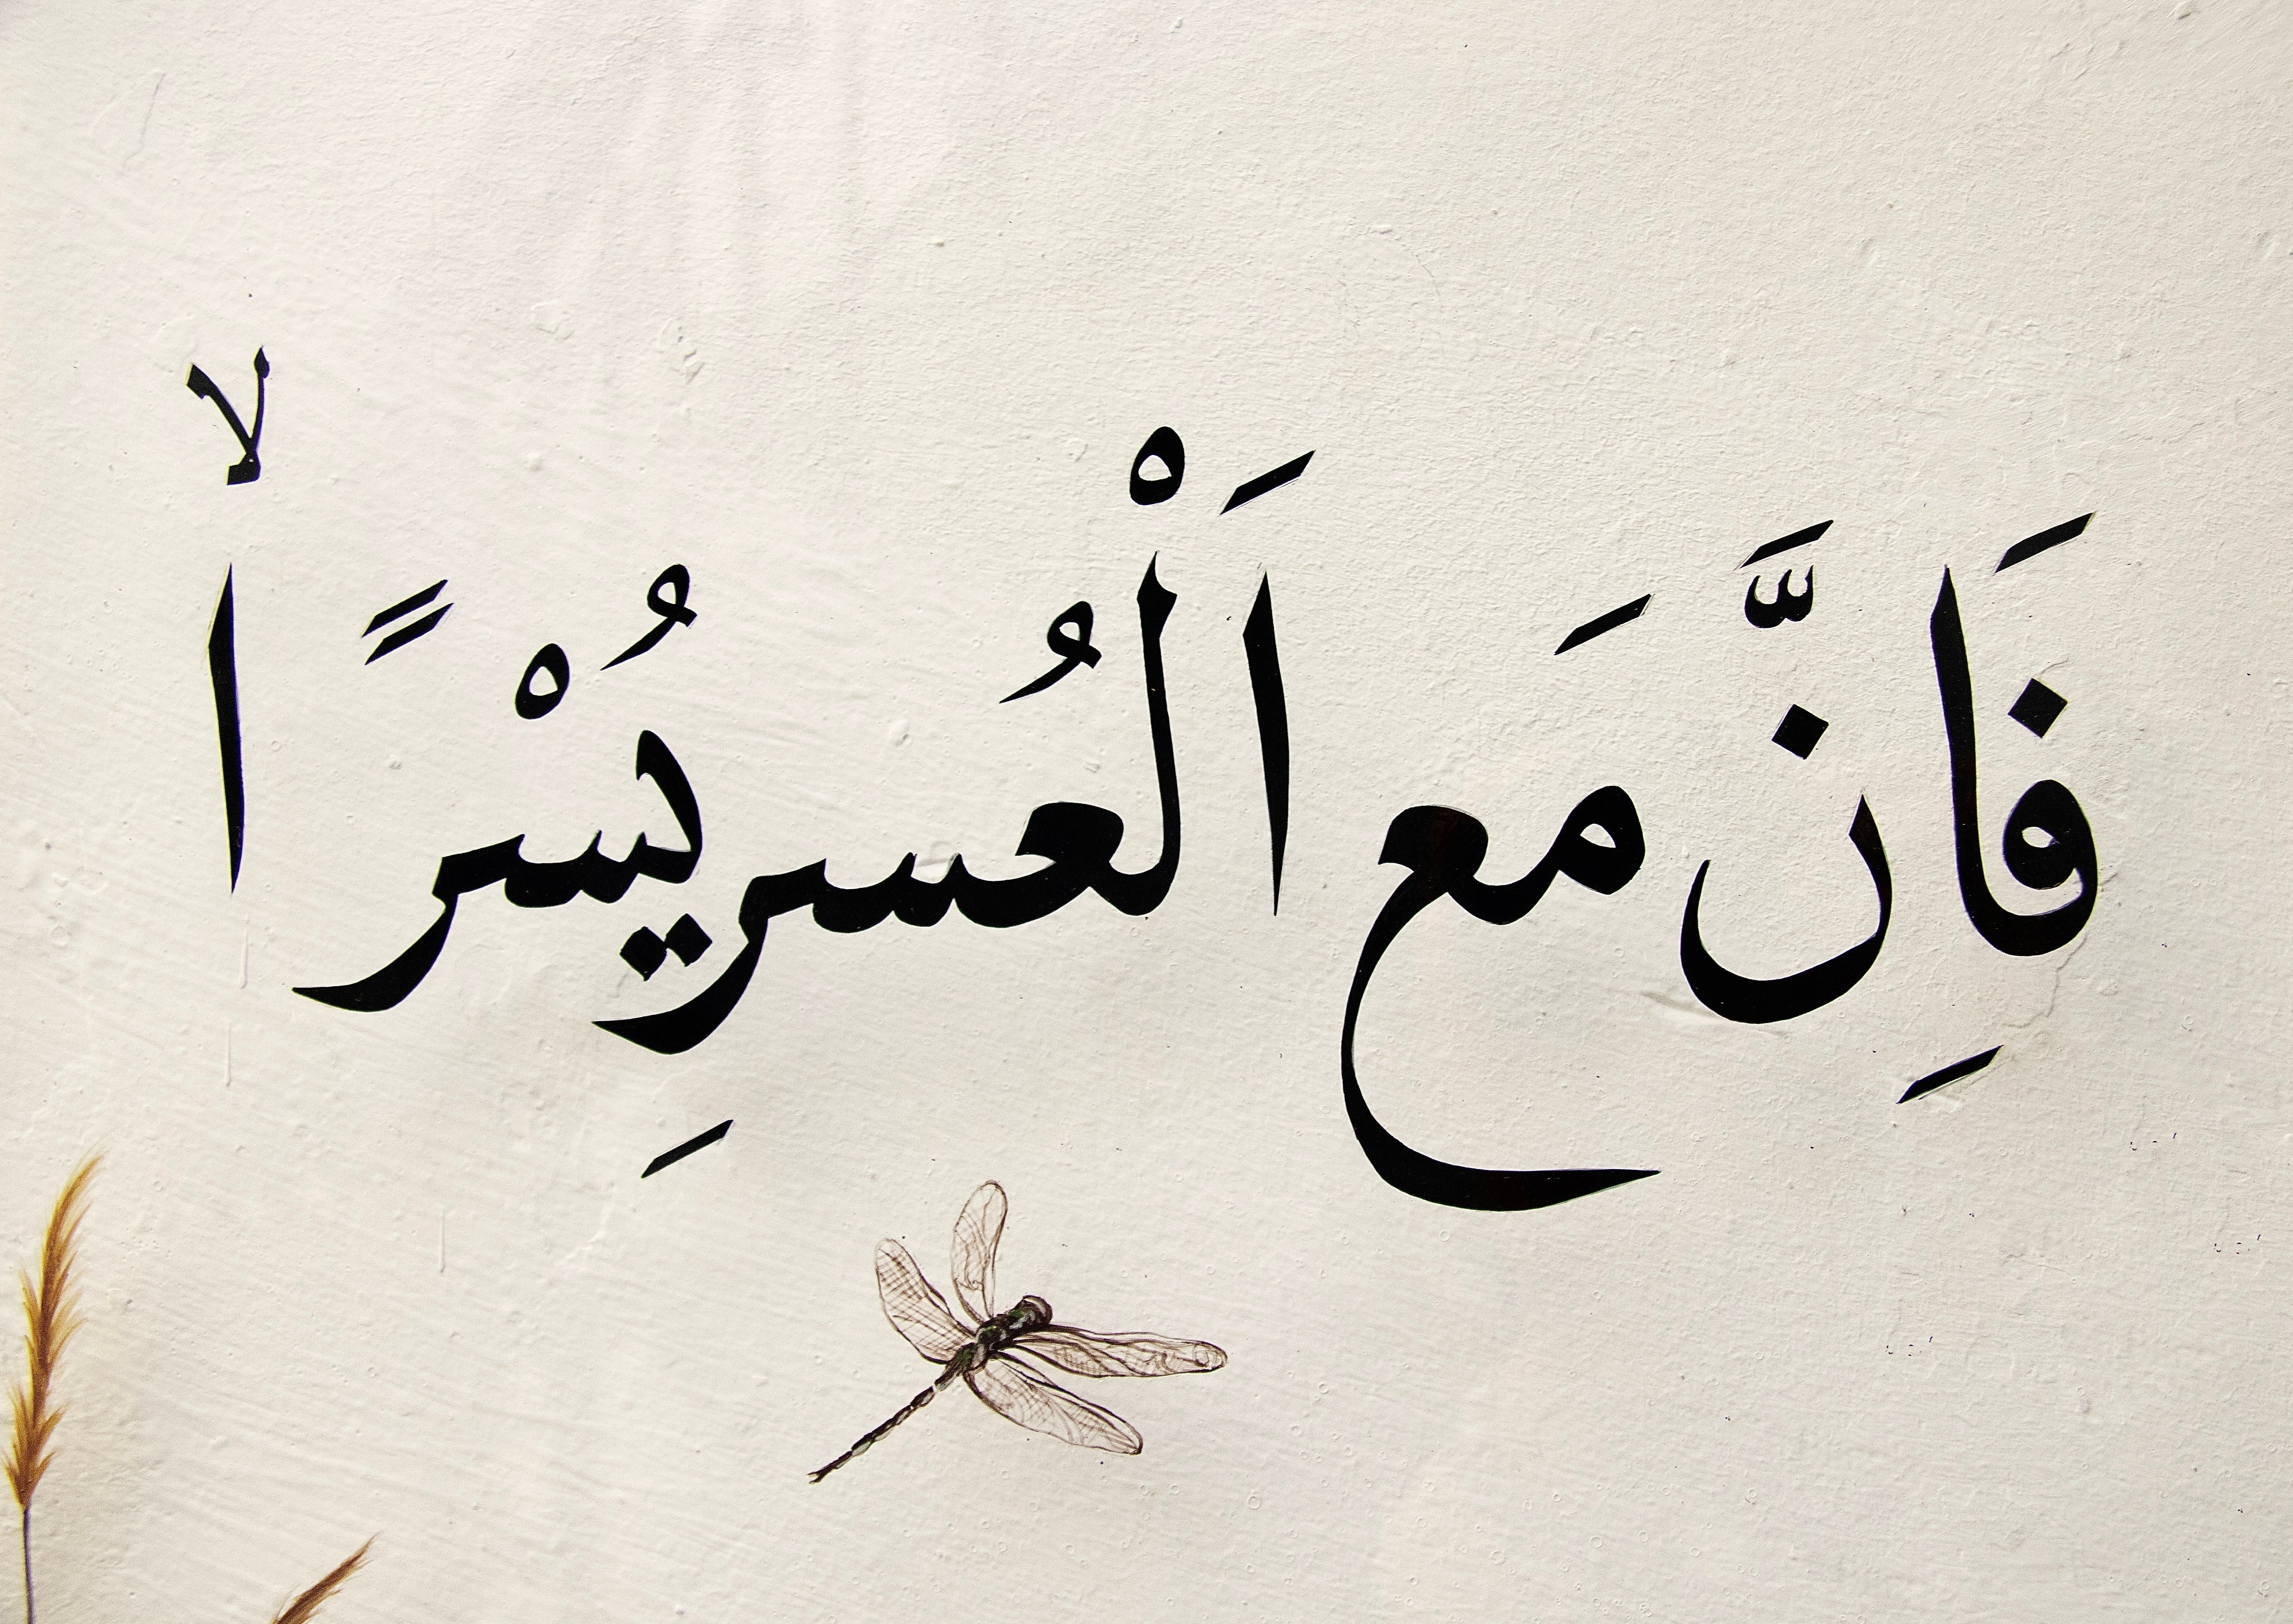 فَاِنَّ مَع اَلْعُسرِ يُسْرًا ۙ